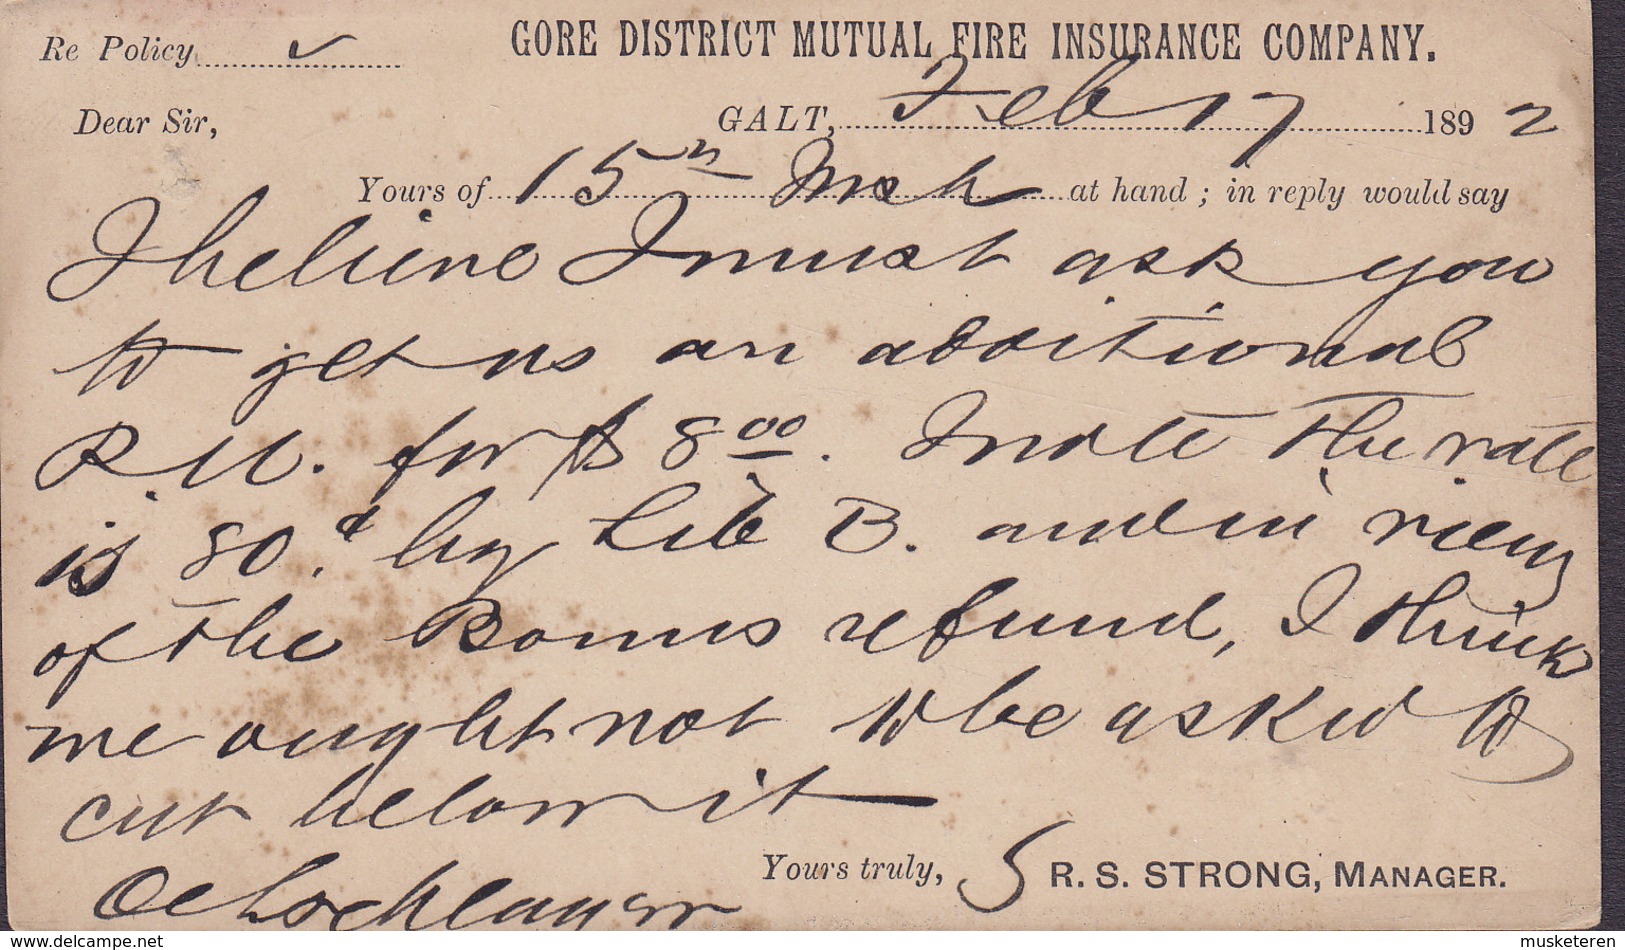 GORE DISTRICT MUTUAL FIRE INSURANCE COMPANY.
Re Policy ✓
GALT, Feb 17 1892
Dear Sir,
Yours of 15th at hand ; in reply would say
I believe I must ask you
to get us an additional
P.N. for $8 00. I note the rate
is 80.¢ by B. and in view
of the Bonus refund, I think
we ought not to be asked to
cut below it
Yours truly, R. S. STRONG, MANAGER.
Oelschlager
www.delcampe.net
musketeren